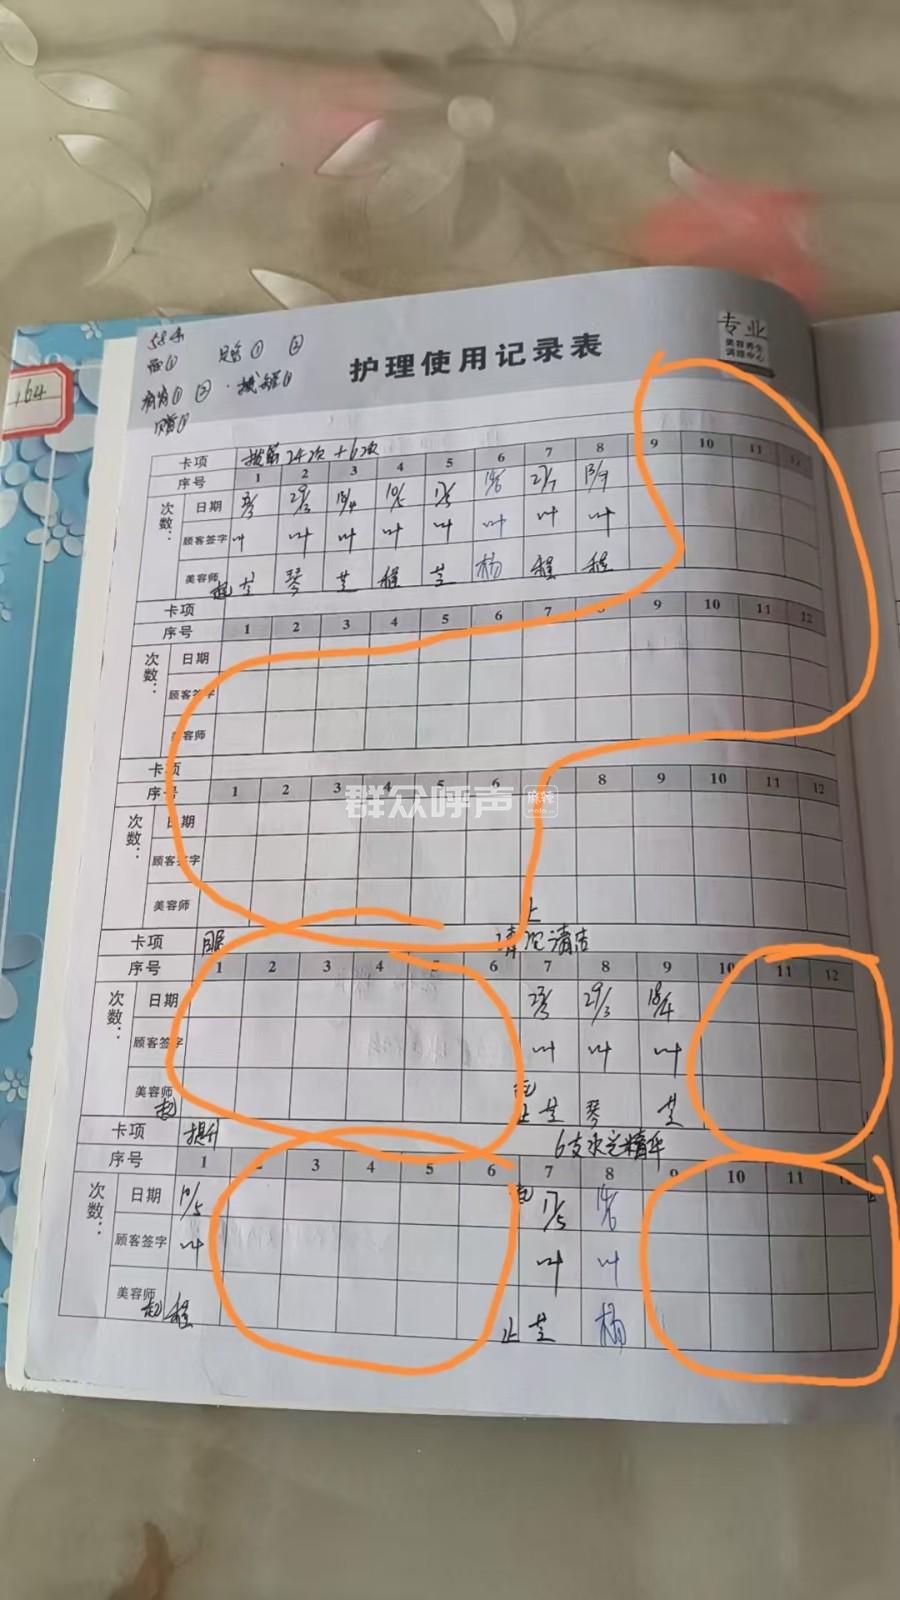 164
专业
美容养生
调理中心
护理使用记录表
卡项 24次 +6次
序号 1 2 3 4 5 6 7 8 9 10 11 12
次数: 日期 29/3 18/4 10/5 17/5 14/6 2/7 13/7
顾客签字 叶 叶 叶 叶 叶 叶 叶 叶
美容师 起 芝 琴 芝 程 芝 杨 程 程
卡项
序号 1 2 3 4 5 6 7 8 9 10 11 12
次数: 日期
顾客签字
美容师
卡项
序号 1 2 3 4 5 6 7 8 9 10 11 12
群众呼声 麻辣
次数: 日期
顾客签字
美容师 止
卡项 眼 清洁
序号 1 2 3 4 5 6 7 8 9 10 11 12
次数: 日期 29/3 18/4
顾客签字 叶 叶 叶
美容师 起 止 芝 琴 芝
卡项 提升 6支 精华
序号 1 2 3 4 5 6 7 8 9 10 11 12
次数: 日期 10/5 17/5 14/6
顾客签字 叶 叶 叶
美容师 起 程 止 芝 杨